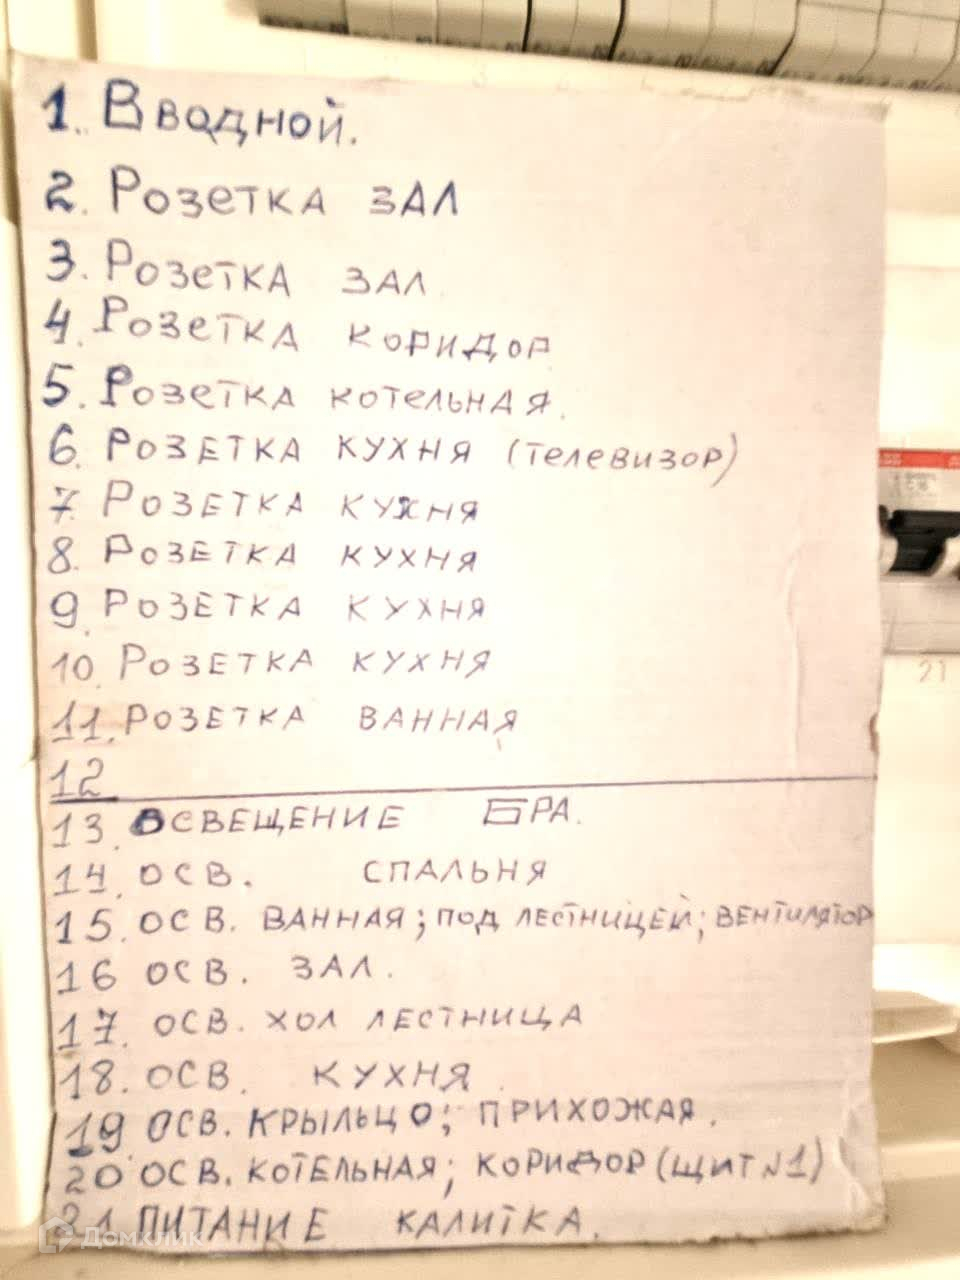 1. Вводной.
2. Розетка зал
3. Розетка зал
4. Розетка коридор
5. Розетка котельная.
6. Розетка кухня (телевизор)
7. Розетка кухня
8. Розетка кухня
9. Розетка кухня
10. Розетка кухня
11. Розетка ванная
12
13. Освещение БРА.
14. осв. спальня
15. осв. ванная; под лестницей; вентилятор
16 осв. зал.
17. осв. хол лестница
18. осв. кухня
19 осв. крыльцо; прихожая.
20 осв. котельная; коридор (щит №1)
21 Питание калитка.
21
Домклик